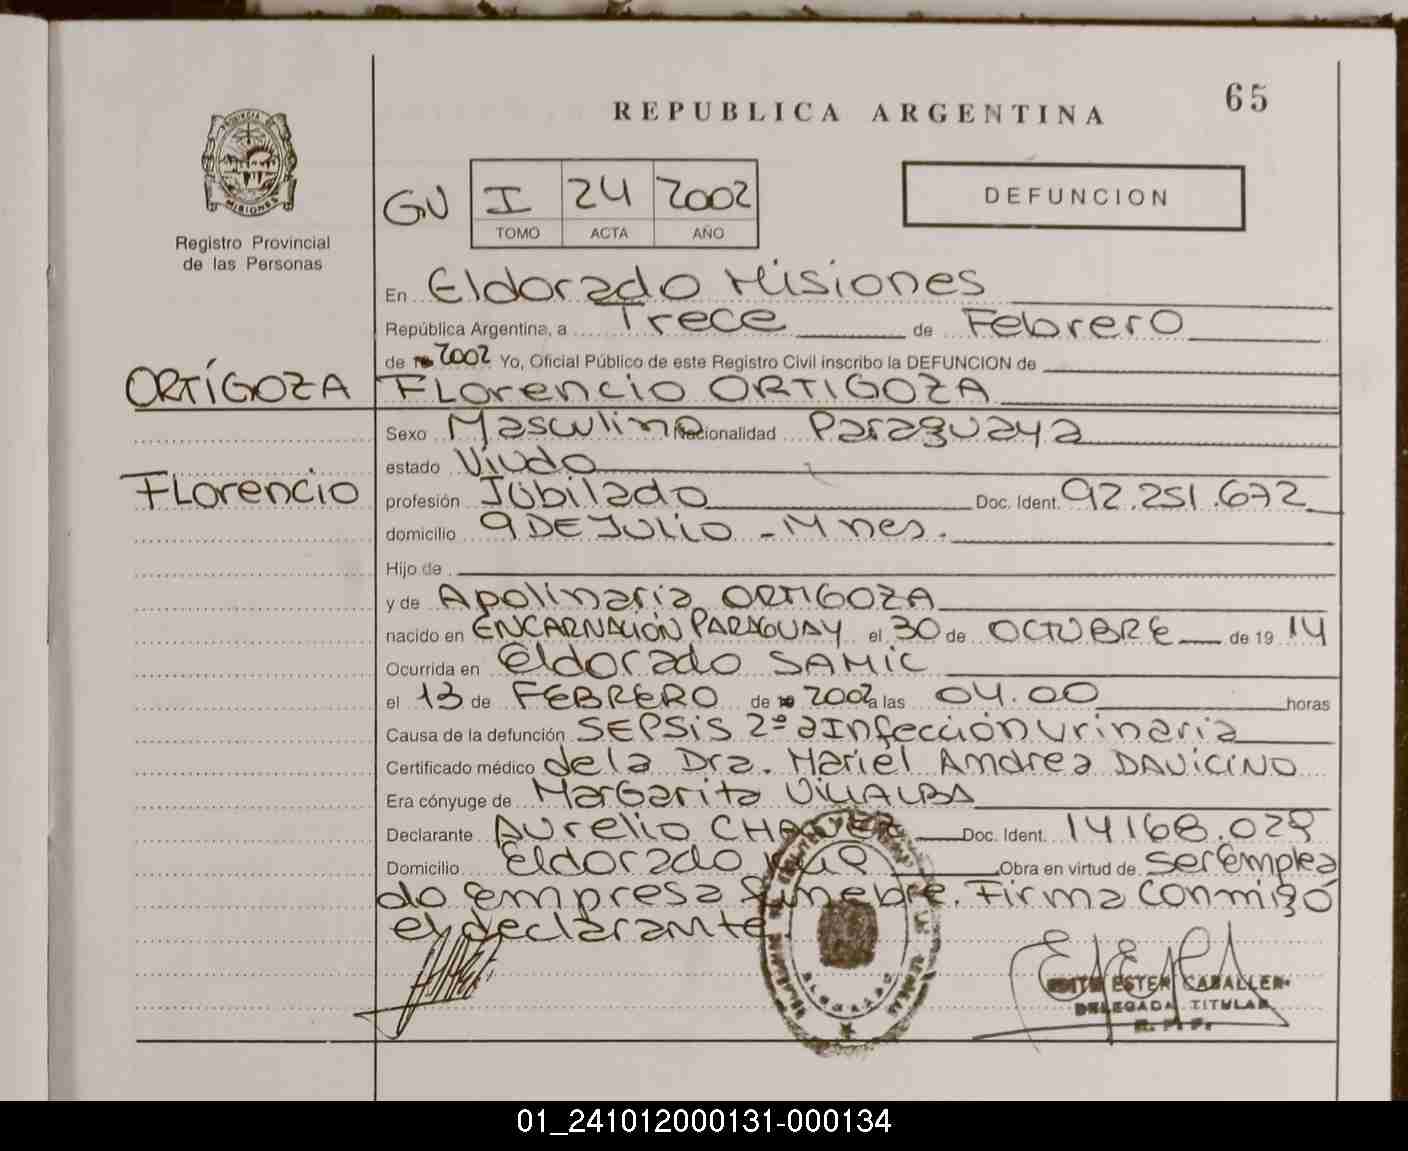 65
REPUBLICA ARGENTINA
PROVINCIA DE MISIONES
Registro Provincial
de las Personas
GU I 24 2002
TOMO ACTA AÑO
DEFUNCION
En Eldorado Misiones
República Argentina, a Trece de Febrero
de 2002 Yo, Oficial Público de este Registro Civil inscribo la DEFUNCION de
ORTÍGOZA FLorencio ORTIGOZA
Sexo Masculino Nacionalidad Paraguaya
estado Viudo
FLorencio
profesión Jubilado Doc. Ident. 92.251.672
domicilio 9 DE JULIO - Mnes.
Hijo de
y de Apolinaria ORTIGOZA
nacido en ENCARNACIÓN PARAGUAY el 30 de OCTUBRE de 19 14
Ocurrida en Eldorado SAMIC
el 13 de FEBRERO de 2002 a las 04.00 horas
Causa de la defunción SEPSIS 2º a Infección urinaria
Certificado médico de la Dra. Mariel Andrea DAVICINO
Era cónyuge de Margarita VILLALBA
Declarante Aurelio CHAVEZ Doc. Ident. 14168.029
Domicilio Eldorado Obra en virtud de ser emplea
do empresa funebre. Firma conmigo
el declarante.
ELDORADO
EDITH ESTER CABALLER
DELEGADA TITULAR
R. P. P.
01_241012000131-000134